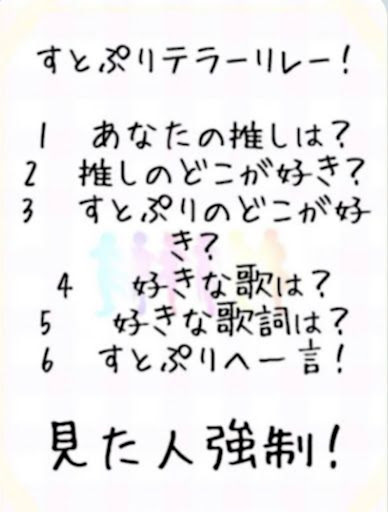 すとぷりテラーリレー!
1 あなたの推しは?
2 推しのどこが好き?
3 すとぷりのどこが好
き?
4 好きな歌は?
5 好きな歌詞は?
6 すとぷりへ一言!
見た人強制!